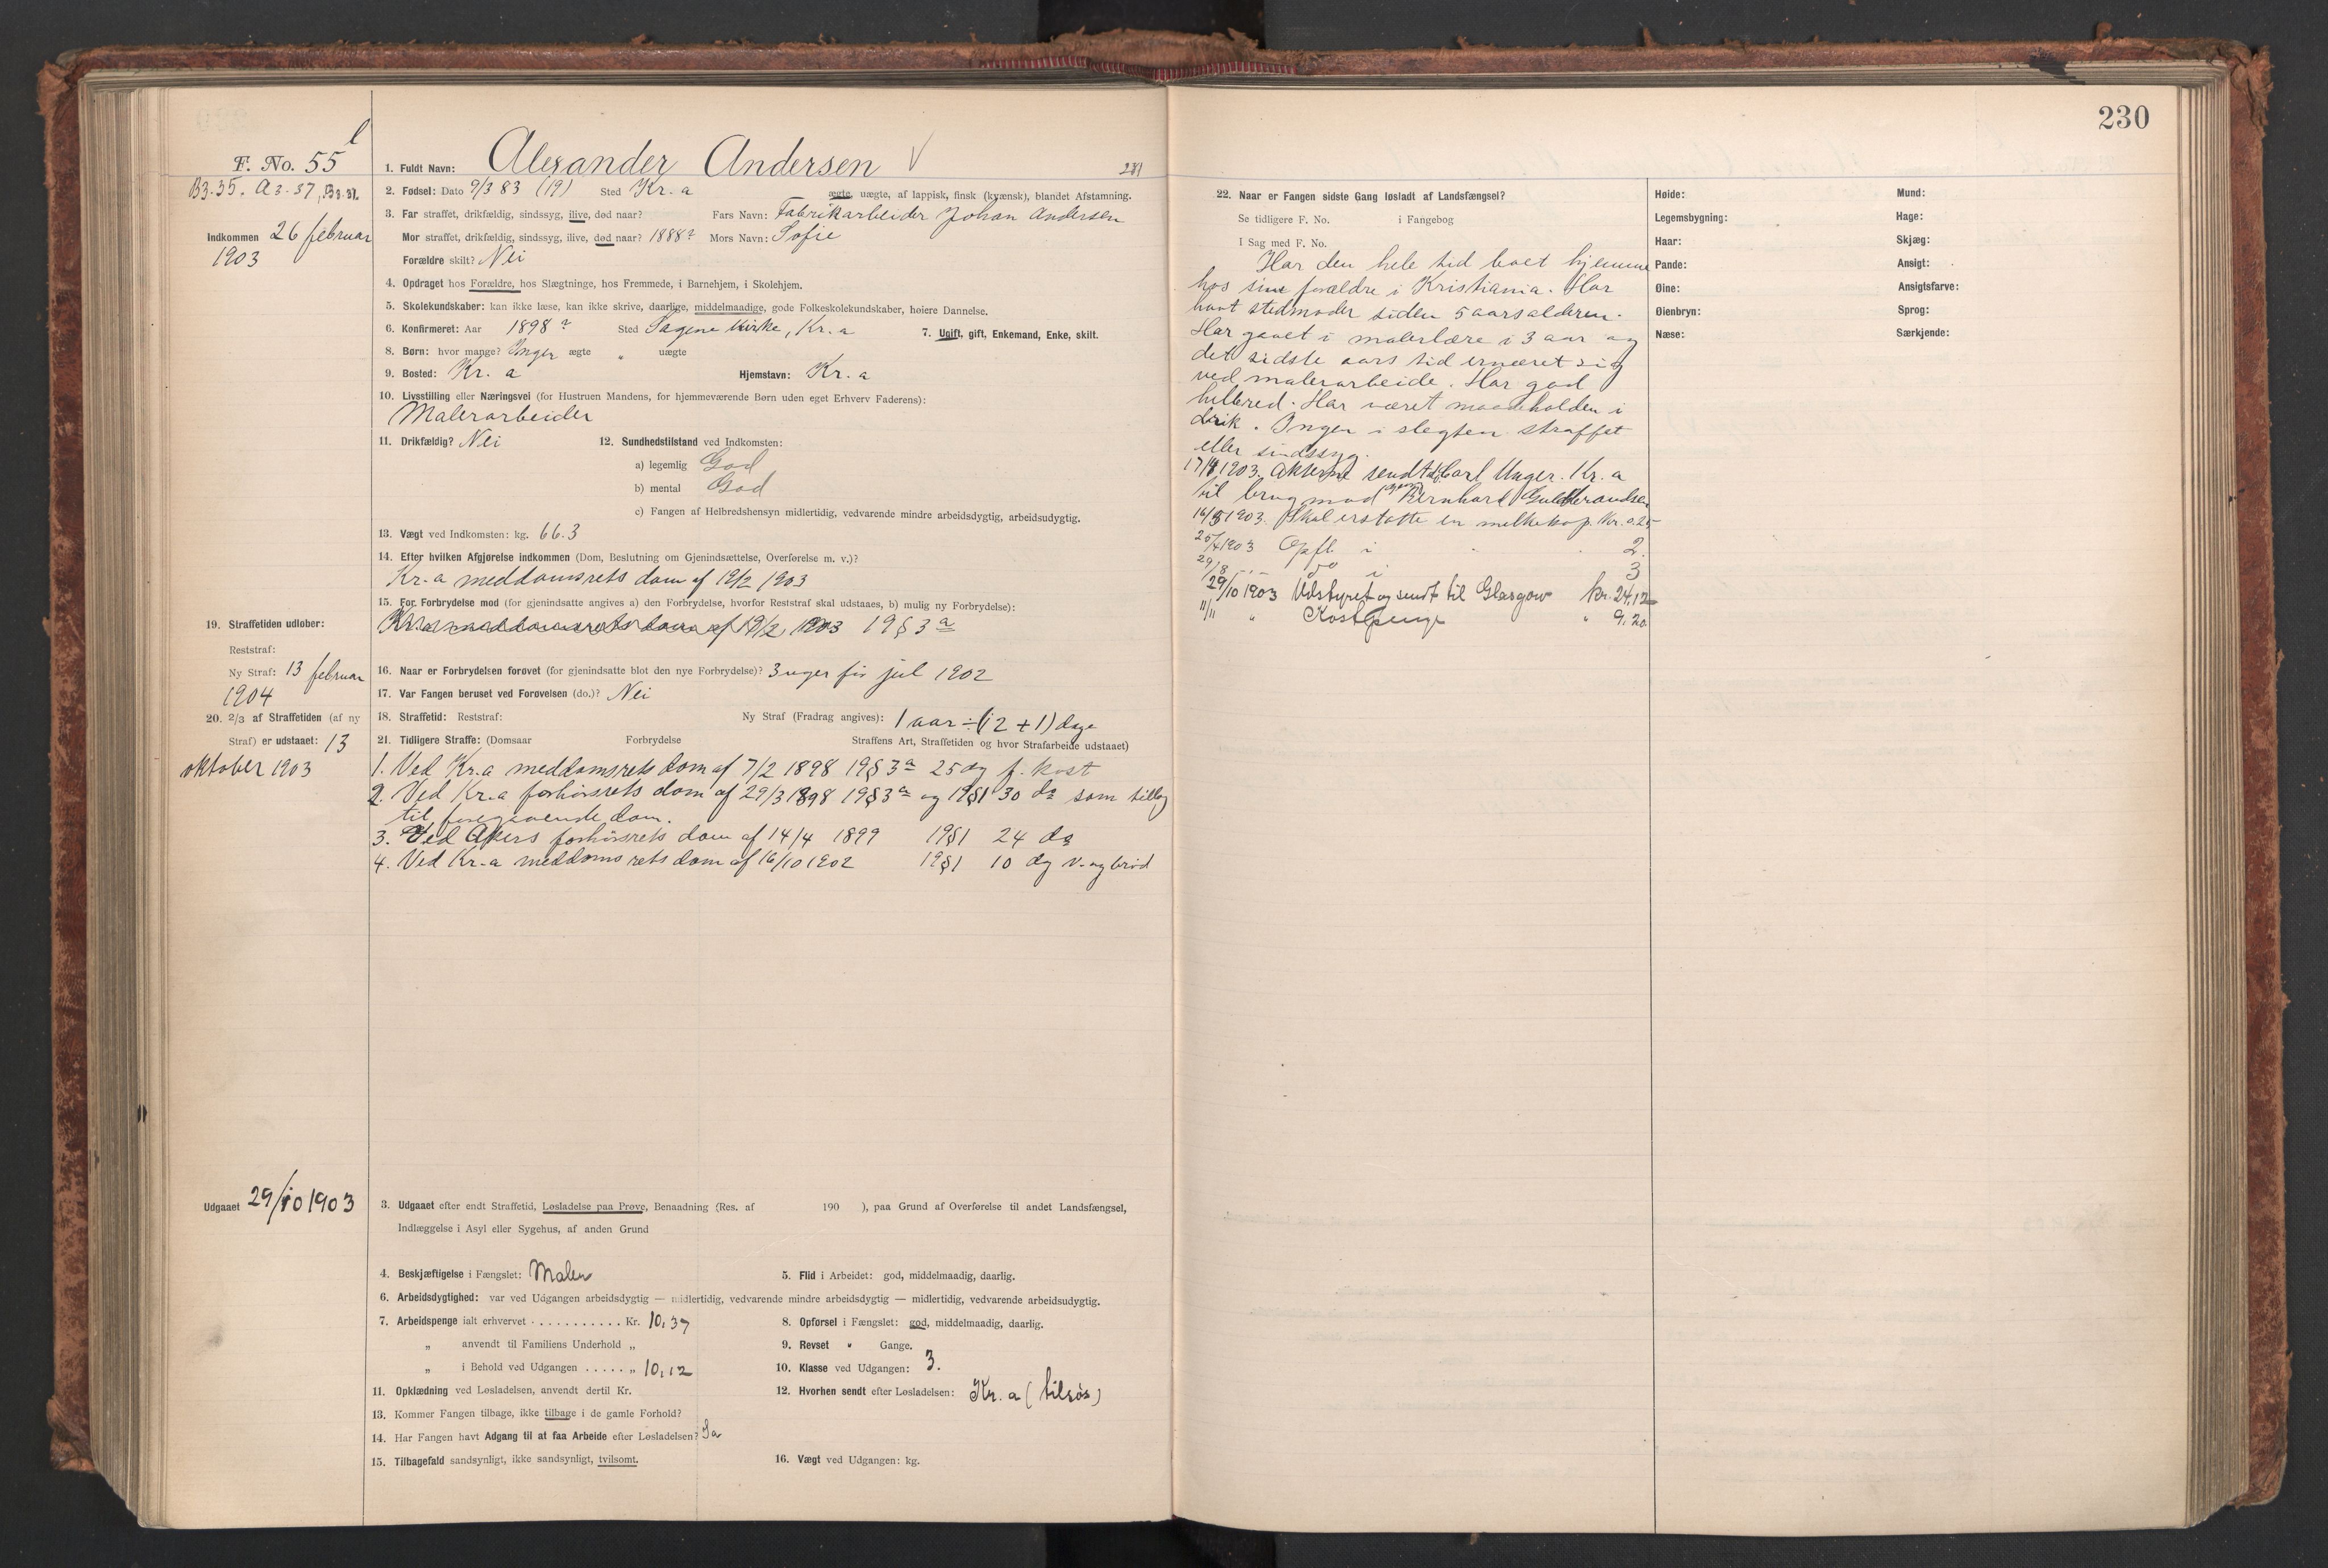 230
l
F. No. 55
B3.35. A3.37, B3.31.
Indkommen 26 februar
1903
1. Fuldt Navn: Alexander Andersen
281
2. Fødsel: Dato 9/3 83 (19) Sted Kr.a ægte, uægte, af lappisk, finsk (kvænsk), blandet Afstamning.
3. Far straffet, drikfældig, sindssyg, ilive, død naar? Fars Navn: Fabrikarbeider Johan Andersen
Mor straffet, drikfældig, sindssyg, ilive, død naar? 1888? Mors Navn: Sofie
Forældre skilt? Nei
4. Opdraget hos Forældre, hos Slægtninge, hos Fremmede, i Barnehjem, i Skolehjem.
5. Skolekundskaber: kan ikke læse, kan ikke skrive, daarlige, middelmaadige, gode Folkeskolekundskaber, høiere Dannelse.
6. Konfirmeret: Aar 1898? Sted Sagene kirke, Kr.a 7. Ugift, gift, Enkemand, Enke, skilt.
8. Børn: hvor mange? Ingen ægte " uægte
9. Bosted: Kr. a Hjemstavn: Kr. a
10. Livsstilling eller Næringsvei (for Hustruen Mandens, for hjemmeværende Børn uden eget Erhverv Faderens):
Malerarbeider
11. Drikfældig? Nei 12. Sundhedstilstand ved Indkomsten:
a) legemlig God
b) mental God
c) Fangen af Helbredshensyn midlertidig, vedvarende mindre arbeidsdygtig, arbeidsudygtig.
13. Vægt ved Indkomsten: kg. 66.3
14. Efter hvilken Afgjørelse indkommen (Dom, Beslutning om Gjenindsættelse, Overførelse m. v.)?
Kr.a meddomsrets dom af 19/2 1903
15. For Forbrydelse mod (for gjenindsatte angives a) den Forbrydelse, hvorfor Reststraf skal udstaaes, b) mulig ny Forbrydelse):
Kr.a meddomsrets dom af 19/2 1903 19 § 3 a
19. Straffetiden udløber:
Reststraf:
Ny Straf: 13 februar
1904
16. Naar er Forbrydelsen forøvet (for gjenindsatte blot den nye Forbrydelse)? 3 uger før jul 1902
17. Var Fangen beruset ved Forøvelsen (do.)? Nei
20. 2/3 af Straffetiden (af ny
Straf) er udstaaet: 13
oktober 1903
18. Straffetid: Reststraf: Ny Straf (Fradrag angives): 1 aar ÷ (12 + 1) dage
21. Tidligere Straffe: (Domsaar Forbrydelse Straffens Art, Straffetiden og hvor Strafarbeide udstaaet)
1. Ved Kr.a meddomsrets dom af 7/2 1898 19 § 3 a 25 dg f. kost
2. Ved Kr.a forhørsrets dom af 29/3 1898 19 § 3 a og 19 § 1 30 do som tillæg
til foregaaende dom.
3. Ved Akers forhørsrets dom af 14/4 1899 19 § 1 24 do
4. Ved Kr.a meddomsrets dom af 16/10 1902 19 § 1 10 dg v. og brød
Udgaaet 29/10 1903
3. Udgaaet efter endt Straffetid, Løsladelse paa Prøve, Benaadning (Res. af 190 ), paa Grund af Overførelse til andet Landsfængsel,
Indlæggelse i Asyl eller Sygehus, af anden Grund
4. Beskjæftigelse i Fængslet: Maler 5. Flid i Arbeidet: god, middelmaadig, daarlig.
6. Arbeidsdygtighed: var ved Udgangen arbeidsdygtig — midlertidig, vedvarende mindre arbeidsdygtig — midlertidig, vedvarende arbeidsudygtig.
7. Arbeidspenge ialt erhvervet . . . . . . . . . . . Kr. 10,37 8. Opførsel i Fængslet: god, middelmaadig, daarlig.
„ anvendt til Familiens Underhold „ 9. Revset " Gange.
„ i Behold ved Udgangen . . . . . „ 10,12 10. Klasse ved Udgangen: 3.
11. Opklædning ved Løsladelsen, anvendt dertil Kr. 12. Hvorhen sendt efter Løsladelsen: Kr. a (tilsøs)
13. Kommer Fangen tilbage, ikke tilbage i de gamle Forhold?
14. Har Fangen havt Adgang til at faa Arbeide efter Løsladelsen? Ja
15. Tilbagefald sandsynligt, ikke sandsynligt, tvilsomt. 16. Vægt ved Udgangen: kg.
22. Naar er Fangen sidste Gang løsladt af Landsfængsel?
Se tidligere F. No. i Fangebog
I Sag med F. No.
Har den hele tid boet hjemme
hos sine forældre i Kristiania. Har
havt stedmoder siden 5 aarsalderen.
Har gaaet i malerlære i 3 aar og
det sidste aars tid ernæret sig
ved malerarbeide. Har god
helbred. Har været maadeholden i
drik. Ingen i slegten straffet
eller sindssyg.
17/4 1903. Akterne sendt Carl Unger. Kr. a
til brug mod Bernhard Guldbrandsen
16/5 1903. Skal erstatte en melkekop. Kr. 0.25
25/4 1903 Opfl. i 2.
29/8 - - do i 3
29/10 1903 Udstyret og sendt til Glasgow kr. 24,12
11/11 " Kostpenge " 9,20
Høide:
Legemsbygning:
Haar:
Pande:
Øine:
Øienbryn:
Næse:
Mund:
Hage:
Skjæg:
Ansigt:
Ansigtsfarve:
Sprog:
Særkjende: